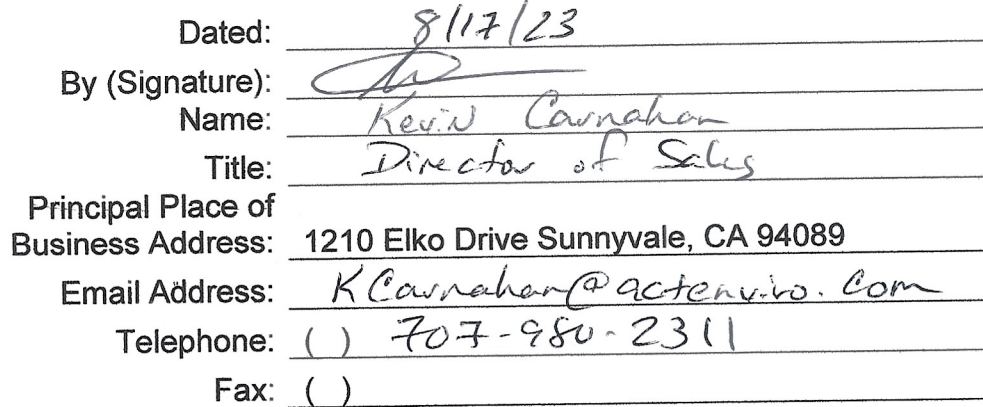 Dated: 8/17/23
By (Signature):
Name: Kevin Carnahan
Title: Director of Sales
Principal Place of
Business Address: 1210 Elko Drive Sunnyvale, CA 94089
Email Address: KCarnahan@actenviro.com
Telephone: ( ) 707-980-2311
Fax: ( )